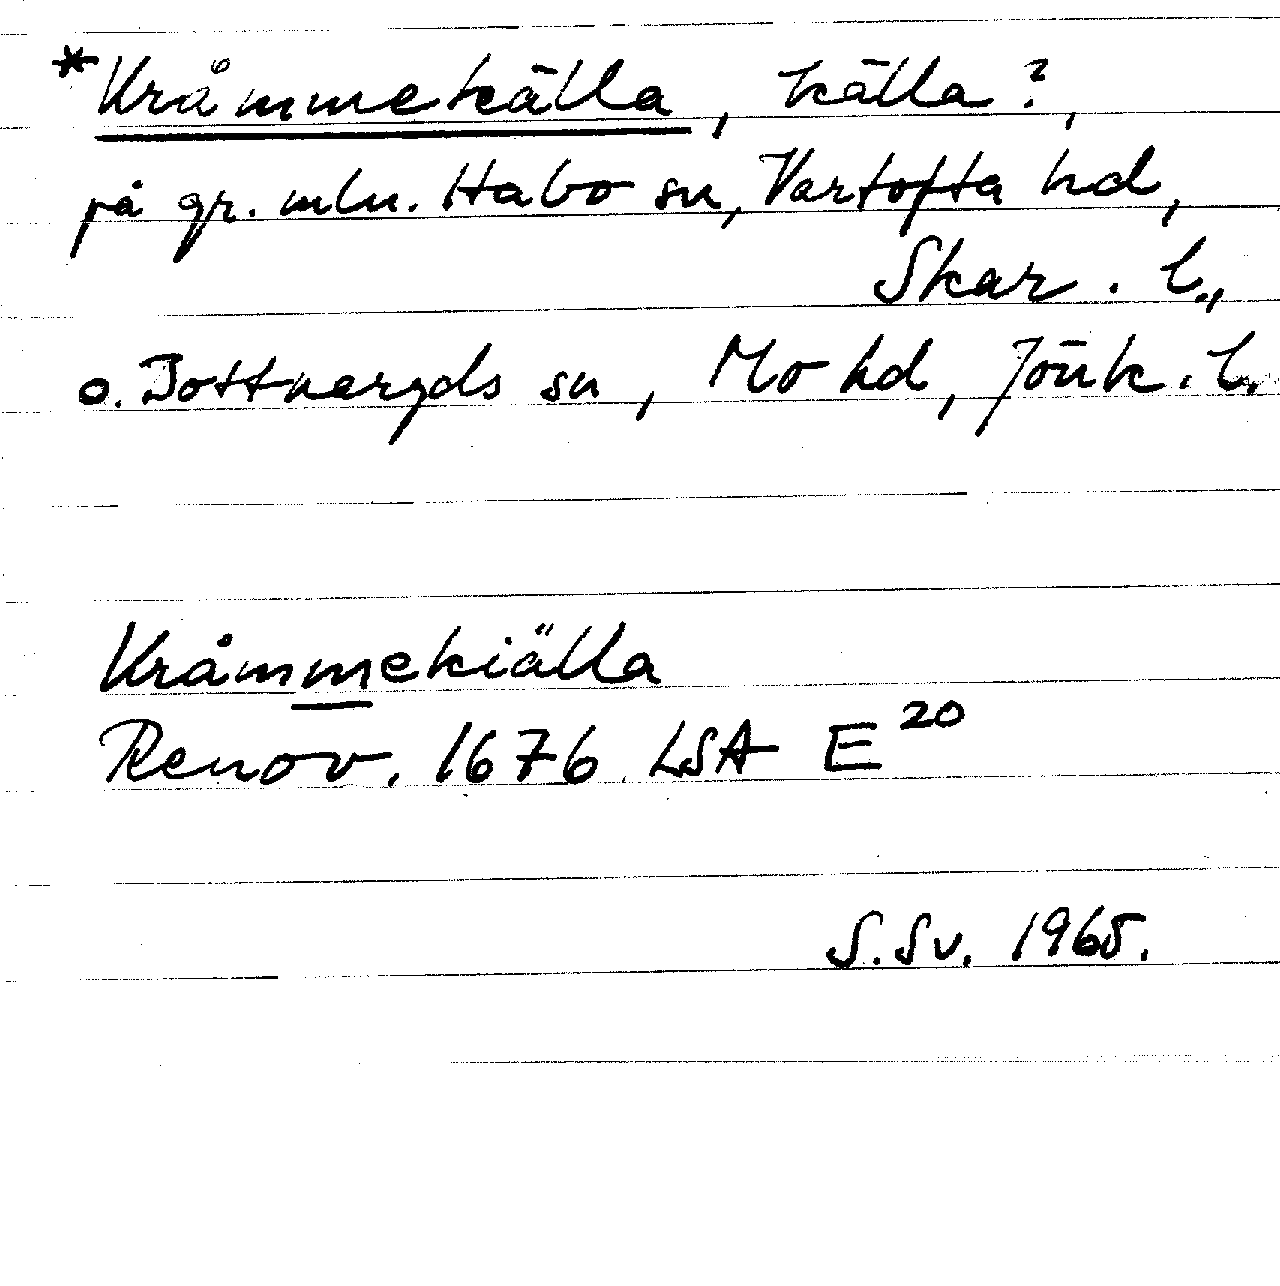 *Kråmmekälla, källa?,
på gr. mln. Habo sn, Vartofta hd,
Skar. l.,
o. Bottnaryds sn, Mo hd, Jönk. l.
Kråmmekiälla
Renov. 1676 LSA E 20
S. Sv. 1965.